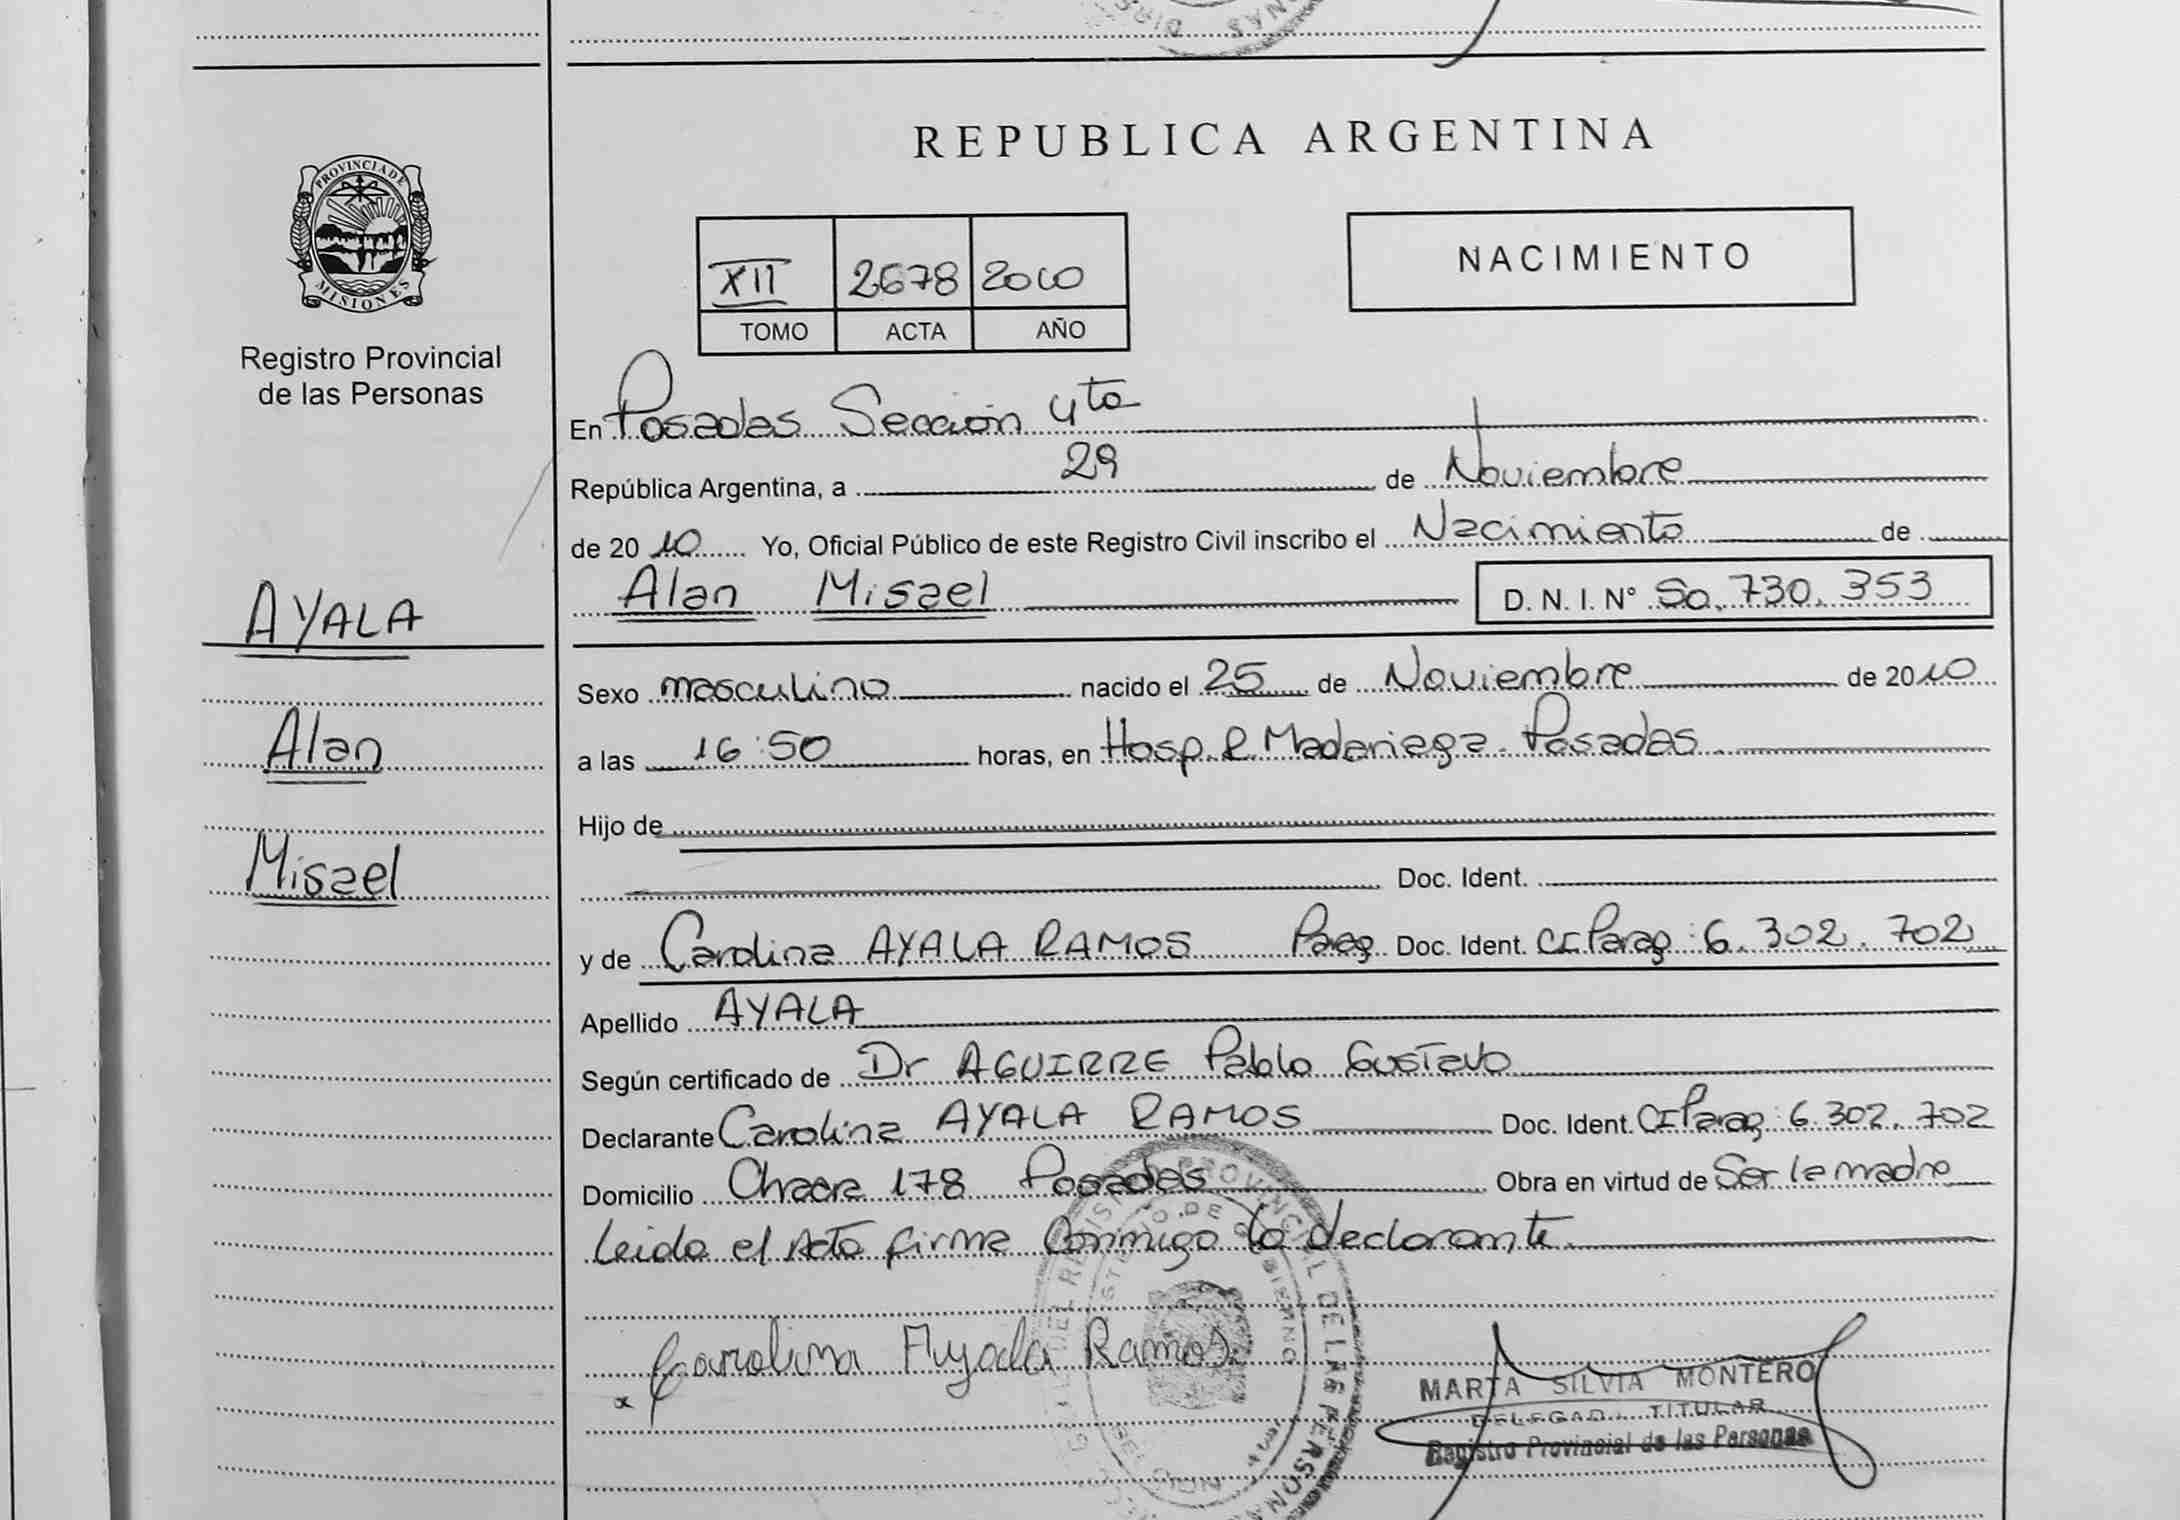 REPUBLICA ARGENTINA
PROVINCIA DE
MISIONES
Registro Provincial
de las Personas
XII 2678 2010
TOMO ACTA AÑO
NACIMIENTO
En Posadas Sección 4ta
República Argentina, a 29 de Noviembre
de 2010 Yo, Oficial Público de este Registro Civil inscribo el Nacimiento de
Alan Misael D. N. I. N° 50.730.353
AYALA
Alan
Misael
Sexo masculino nacido el 25 de Noviembre de 2010
a las 16:50 horas, en Hosp. R. Madariaga. Posadas
Hijo de
Doc. Ident.
y de Carolina AYALA RAMOS Parag. Doc. Ident. CI Parag: 6.302.702
Apellido AYALA
Según certificado de Dr AGUIRRE Pablo Gustavo
Declarante Carolina AYALA RAMOS Doc. Ident. CI Parag: 6.302.702
Domicilio Chacra 178 Posadas Obra en virtud de Ser la madre
Leida el Acta firma Conmigo la declarante.
Carolina Ayala Ramos
MARTA SILVIA MONTERO
DELEGADA TITULAR
Registro Provincial de las Personas